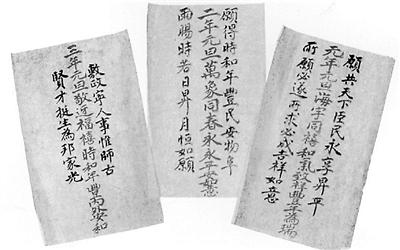 願共天下臣民永享昇平
元年元旦海宇同禧和氣致祥豐年為瑞
所願必遂所求必成吉祥如意
願得時和年豐民安物阜
二年元旦萬象同春永永平安如意
雨暘時若日昇月恒如願
敷政寧人事惟師古
三年元旦敬迓福禧時和年豐安和
賢才挺生為邦家光